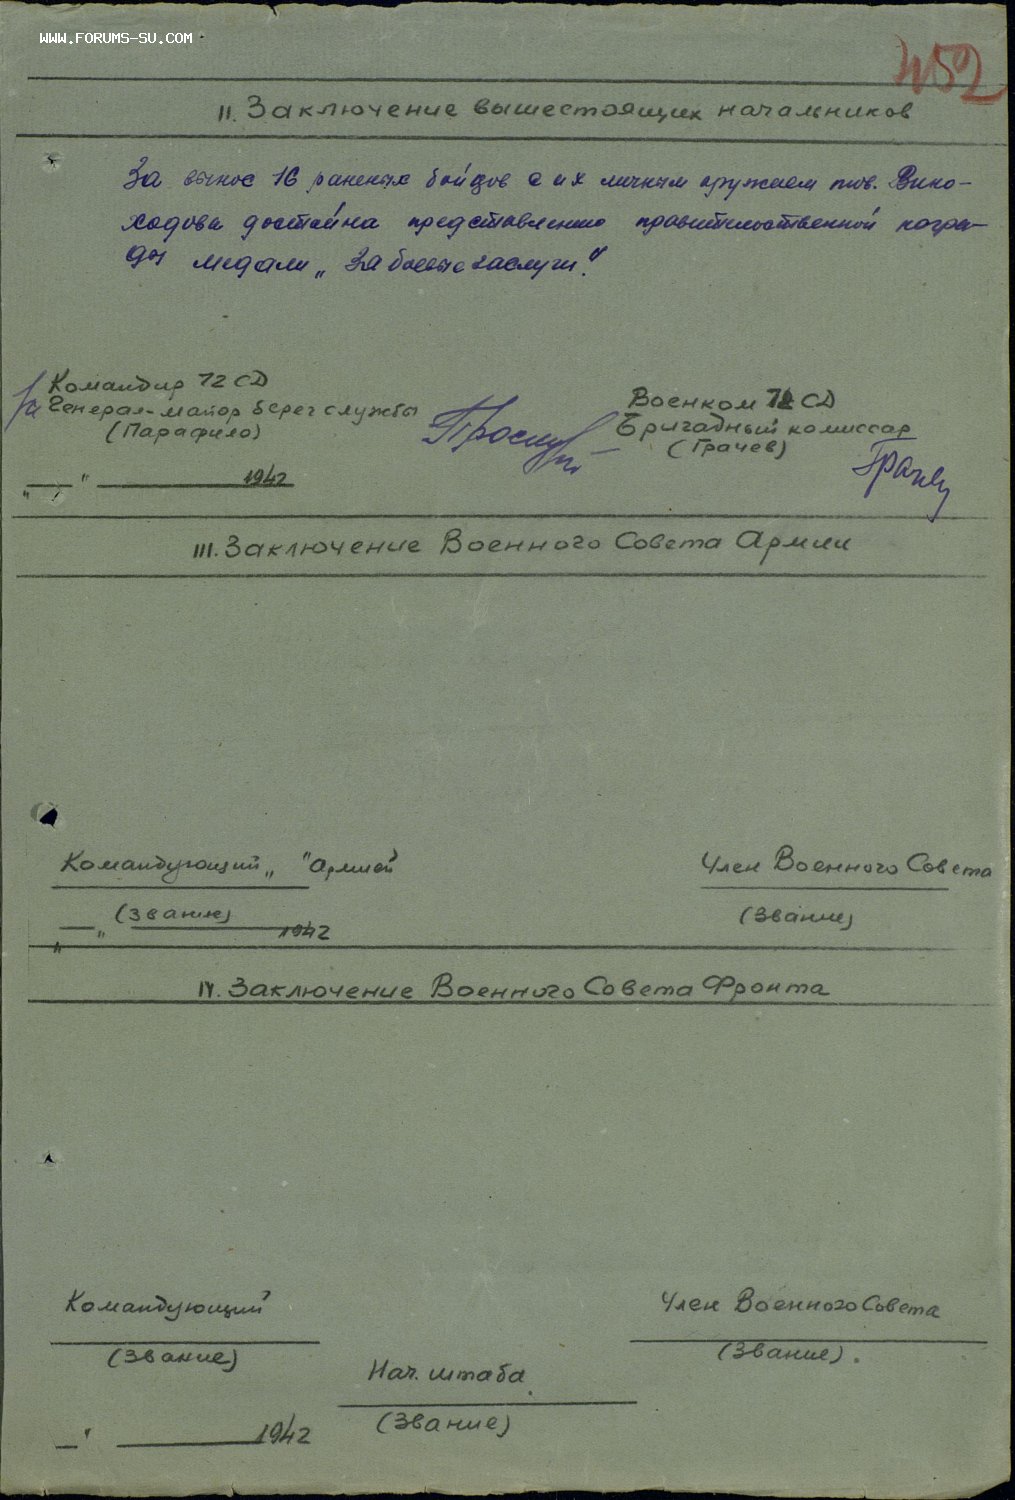 WWW.FORUMS-SU.COM
452
II. Заключение вышестоящих начальников
За вынос 16 раненых бойцов с их личным оружием тов. Вино-
ходова достойна представлению правительственной награ-
ды медали „За боевые заслуги".
Командир 72 СД
За Генерал-майор берег службы
(Парафило)
„ " 1942
Военком 72 СД
Бригадный комиссар
(Грачев)
Грачев
III. Заключение Военного Совета Армии
Командующий „ " Армией
(Звание)
„ " 1942
Член Военного Совета
(Звание)
IV. Заключение Военного Совета Фронта
Командующий
(Звание)
Член Военного Совета
(Звание).
Нач. штаба
(Звание)
" 1942